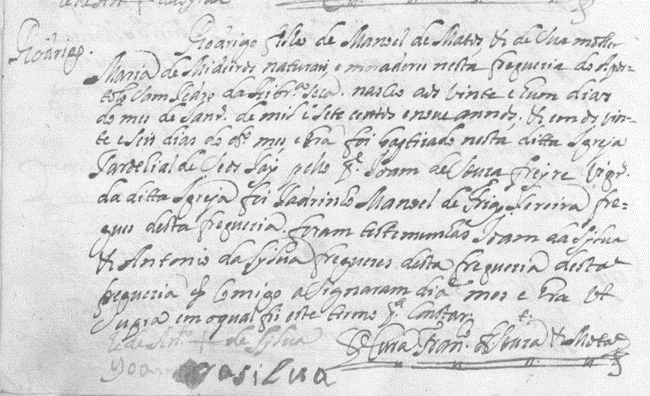 Rodrigo.
Rodrigo filho de Manoel de Matos & de sua molher
Maria de Mideiros naturais, e moradores nesta freguezia do Apos-
tolo Sam Pedro da Ribrª seca. nasceo aos vinte e hum dias
do mes de Janrº. de mil i sete centos e nove annos, & em os vin-
te e seis dias do dº mes e Era foi baptizado nesta ditta Igreja
de seos Pais pello Pe. Joam de Souza freyre Vigrº.
da ditta Igreja foi Padrinho Manoel de Pereira fre-
gues desta freguezia. foram testemunhas Joam da Sylva
& Antonio da Sylva fregueses desta freguezia desta
freguezia q comigo asignaram dia mes e Era Vt
Supra em o qual fis este termo pª. Constar,
de Antº + de Sylva
Joam dasilva
O Cura Fran. de Souza & Mota